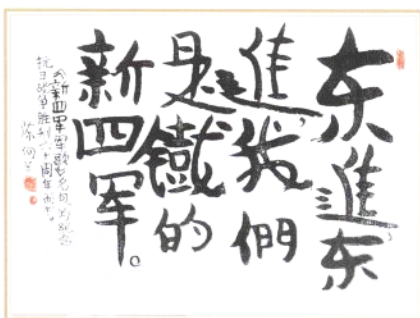 东進东
進，我們
是鐵的
新四军。
《新四军军歌》名句为纪念
抗日战争胜利六十周年